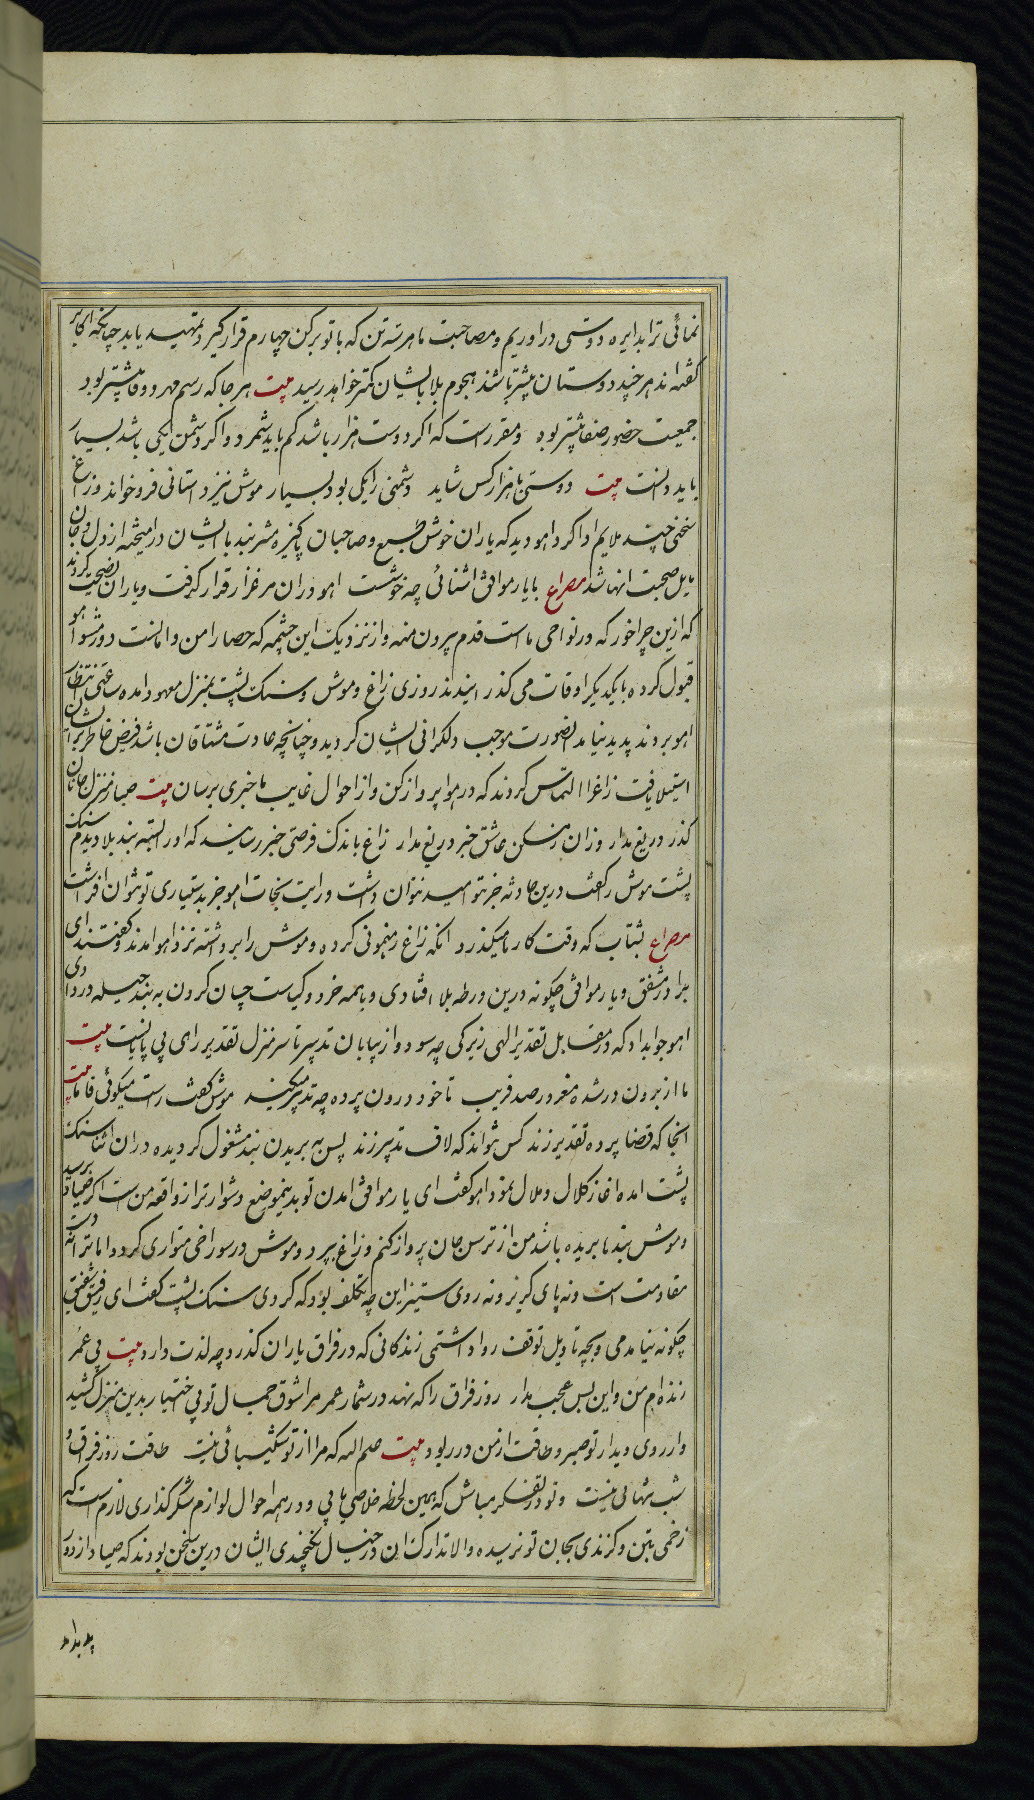 نمائی ترا بدایره دوستی دراوریم و مصاحبت ما هر سه تن که با تو برکن چهارم قرار گیرد تمهید یابد چنانکه اکابر
گفته اند هر چند دوستان بیشتر باشند هجوم بلا بایشان کمتر خواهد رسید بیت هر جا که رسم مهر و وفا بیشتر بود
جمعیت حضور صفا بیشتر بود و مقررست که اکر دوست هزار باشد کم باید شمرد و اکر دشمن یکی باشد بسیار
باید دانست بیت دوستی با هزار کس شاید دشمنی را یکی بود بسیار موش نیز داستانی فرو خواند و زاغ
سخنی چند ملایم ادا کرد اهو دید که یاران خوش طبع و صاحبان پاکیزه مشربند با ایشان درامیخته از دل و جان
مایل صحبت انها شد مصراع با یار موافق اشنائی چه خوشست اهو دران مرغزار قرار گرفت و یاران نصیحت کردند
که ازین چراخور که در نواحی ماست قدم بیرون منه و از نزدیک این چشمه که حصار امن و امانست دور مشو اهو
قبول کرده با یکدیکر اوقات می گذرانیدند روزی زاغ و موش و سنک پشت بمنزل معهود امده ساعتی انتظار
اهو بردند پدید نیامد اینصورت موجب دلکرانی ایشان کردید و چنانچه عادت مشتاقان باشد خاطر برایشان
استیلا یافت زاغ را التماس کردند که در هوا پرواز کن و از احوال غایب ما خبری برسان بیت صبا ز منزل جانان
گذر دریغ مدار وزان بمسکین عاشق خبر دریغ مدار زاغ باندک فرصتی خبر رسانید که او را بسته بند بلا دیدم سنک
پشت موش را گفت درین حادثه جز بتو امید نتوان داشت و رایت نجات اهو جز بدستیاری تو نتوان افراشت
مصراع بشتاب که وقت کار ما میکذرد انکه زاغ رهنمونی کرده و موش را برداشته نزد اهو امدند و گفتند ای
برادر مشفق و یار موافق چکونه درین ورطه بلا افتادی و با همه خرد و کیاست چسان گردن به بند حیله دردادی
اهو جواب داد که در مقابل تقدیر الهی زیرکی چه سود و از بیابان تدبیر تا سرمنزل تقدیر رای بی پایانست بیت
ما از برون در شده مغرور صد فریب تا خود درون پرده چه تدبیر میکنند موش گفت راست میکوئی فاما بیت
انجا که قضا پرده تقدیر زند کس نتواند که لاف تدبیر زند پس به بریدن بند مشغول گردیده دران اثنا سنک
پشت امده اغاز کلال و ملال نمود اهو گفت ای یار موافق امدن تو بدینموضع دشوارتر از واقعه من است اکر صیاد برسد
و موش بندها بریده باشد من از ترس جان پرواز کنم و زاغ بپرد و موش در سوراخی متواری گردد اما ترا نه دست
مقاومت است و نه پای گریز و نه روی ستیز این چه تکلف بود که کردی سنک پشت گفت ای رفیق شفیق
چکونه نیامدمی و بچه تاویل توقف روا داشتمی زندگانی که در فراق یاران گذرد چه لذت دارد بیت بی عمر
زنده ام من و این بس عجب مدار روز فراق را که نهد در شمار عمر مرا شوق جمال تو بی اختیار بدین منزل کشید
و ارزوی دیدار تو صبر و طاقت از من در ربود بیت صنم الله که مرا از تو شکیبائی نیست طاقت روز فراق و
شب تنهائی نیست و تو در تفکر مباش که بهمین لحظه خلاصی یابی و در همه احوال لوازم شکرگذاری لازم است که
زخمی بتن و گزندی بجان تو نرسیده و الا تدارک ان در خیال نگنجیدی ایشان درین سخن بودند که صیاد از دور
پدید امد